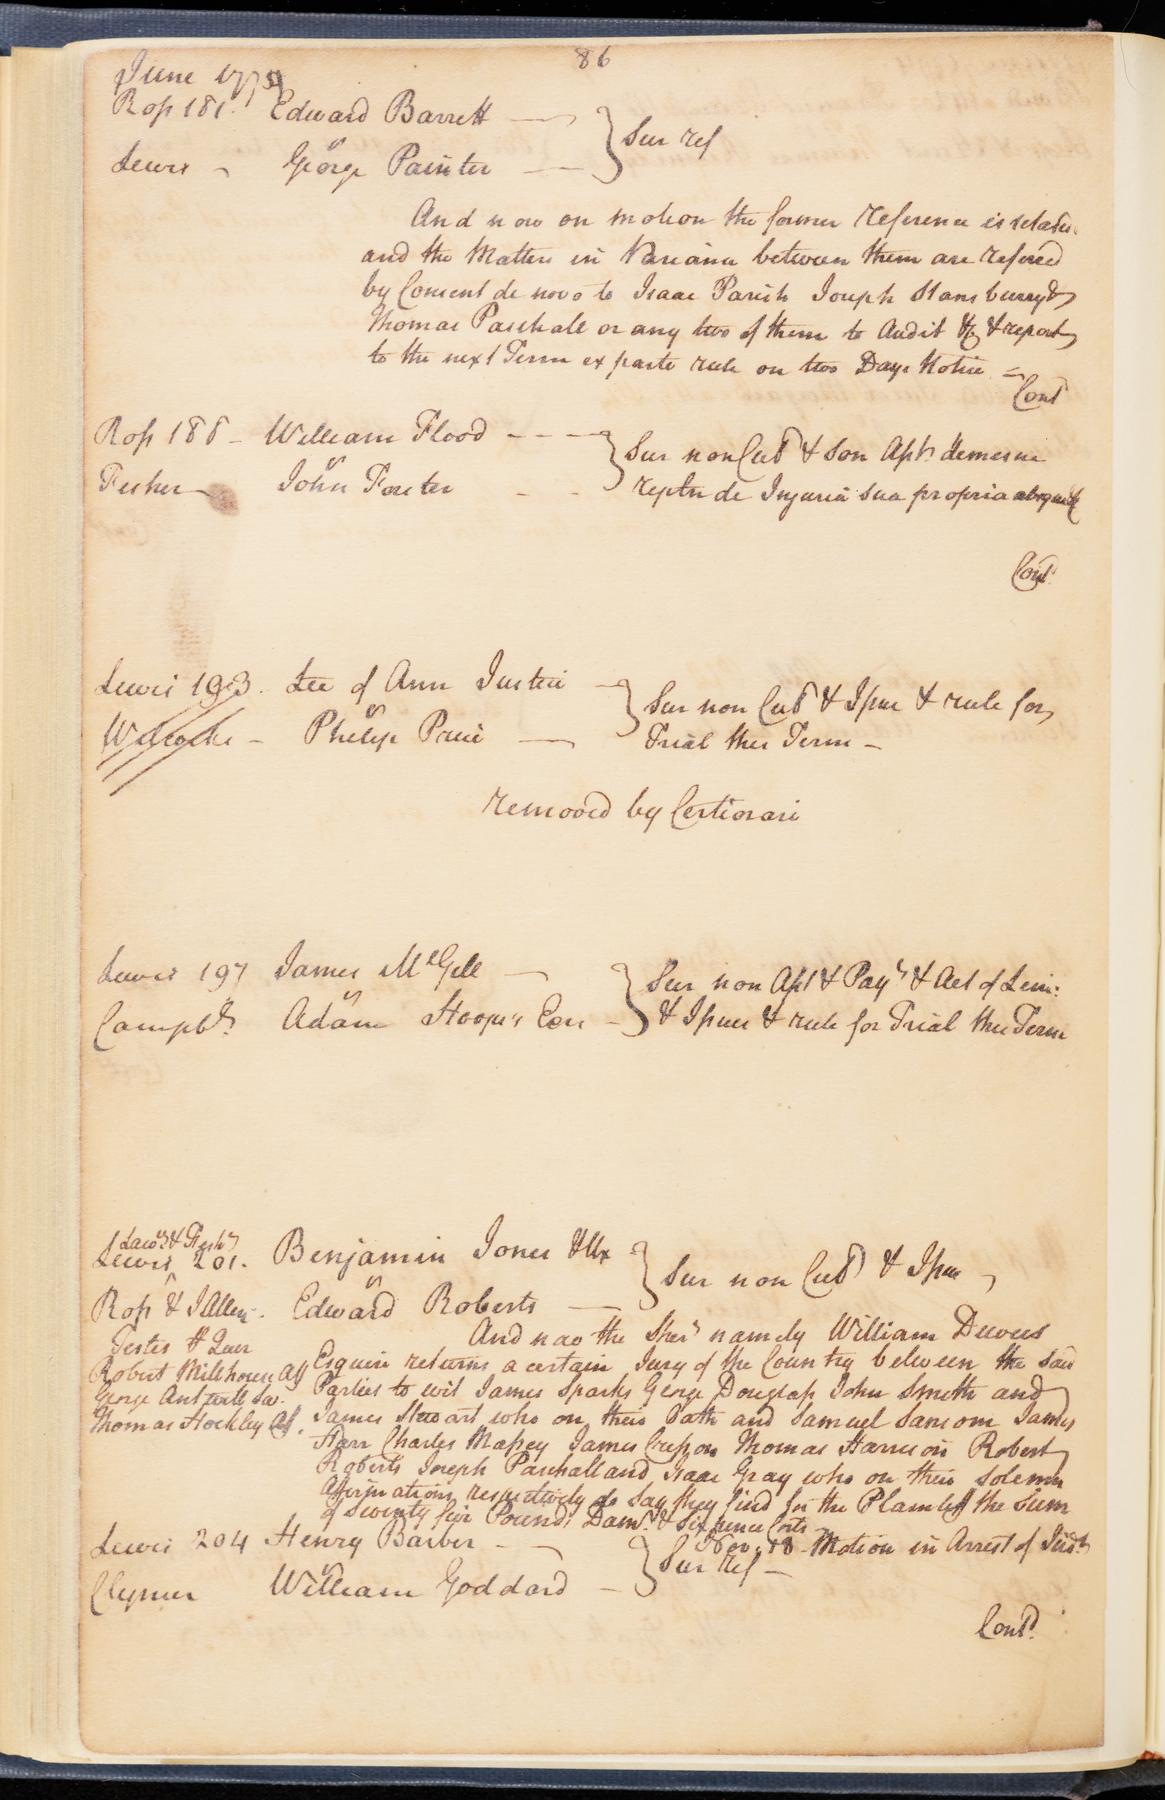 86
June 1775
Ross 181. Edward Barrett
vs } Sur ref
Lewis George Painter
And now on motion the former reference is
and the Matters in Variance between them are refered
by Consent de novo to Isaac Parish Joseph Stansburry &
Thomas Paschall or any two of them to Audit &c & report
to the next Term ex parte rule on two Days Notice
Cont
Ross 188 William Flood
vs } Sur non Cul & Son Asst demesne
Fisher John Foster repln de Injuria sua propria absque &c
Cont
Lewis 193. Lee of Ann Justice
vs } Sur non Cul & Issue & rule for
Wilcocks Philip Price Trial this Term
removed by Certiorari
Lewis 197 James McGill
vs } Sur non Asst & Payt & Act of Lim:
Campbll. Adam Hoops's Exrs & Issues & rule for Trial this Term
Laws & Fishr
Lewis 201. Benjamin Jones & Ux
vs } Sur non Cul & Issue
Ross & J Allen. Edward Roberts
And now the Sherf namely William Dewees
Testes Quer
Esquire returns a certain Jury of the Country between the said
Robert Milhouse aff
Parties to wit James Sparks George Douglass John Smith and
George Antrill Sw.
James Stewart who on their Oath and Samuel Sansom James
Thomas Hockley Aff.
Starr Charles Massey James Cresson Thomas Harrison Robert
Roberts Joseph Paschall and Isaac Gray who on their solemn
Affirmations respectively do say they find for the Plaintiff the sum
of Seventy five Pounds Dams & Sixpence Costs
Nov. 18 Motion in Arrest of Judt
Lewis 204 Henry Barber
vs } Sur Ref
Clymer William Goddard
Cont.